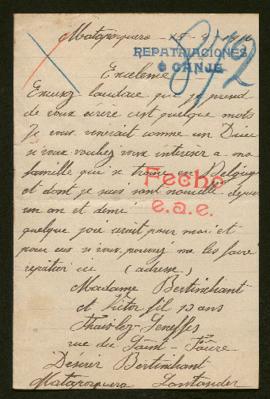 Mataporquera
REPATRIACIONES
ó CANJE
872
Excelence
Excusez l'audace que je prend
de vous écrire ces quelque mots
Je vous venerait comme un Dieu
si vous vouliez vous interesser a ma
famille qui se trouve en Belgique
et dont je suis sans nouvelle depuis
un an et demi
quelque joie serait pour moi et
pour eux si vous pouvez me les faire
repatrier ici (adresse)
Fecho
e.a.e.
Madame Bertinchant
et Victor fil 13 ans
Thuillez
rue du Saint
Désirér Bertinchant
Mataporquera Santander